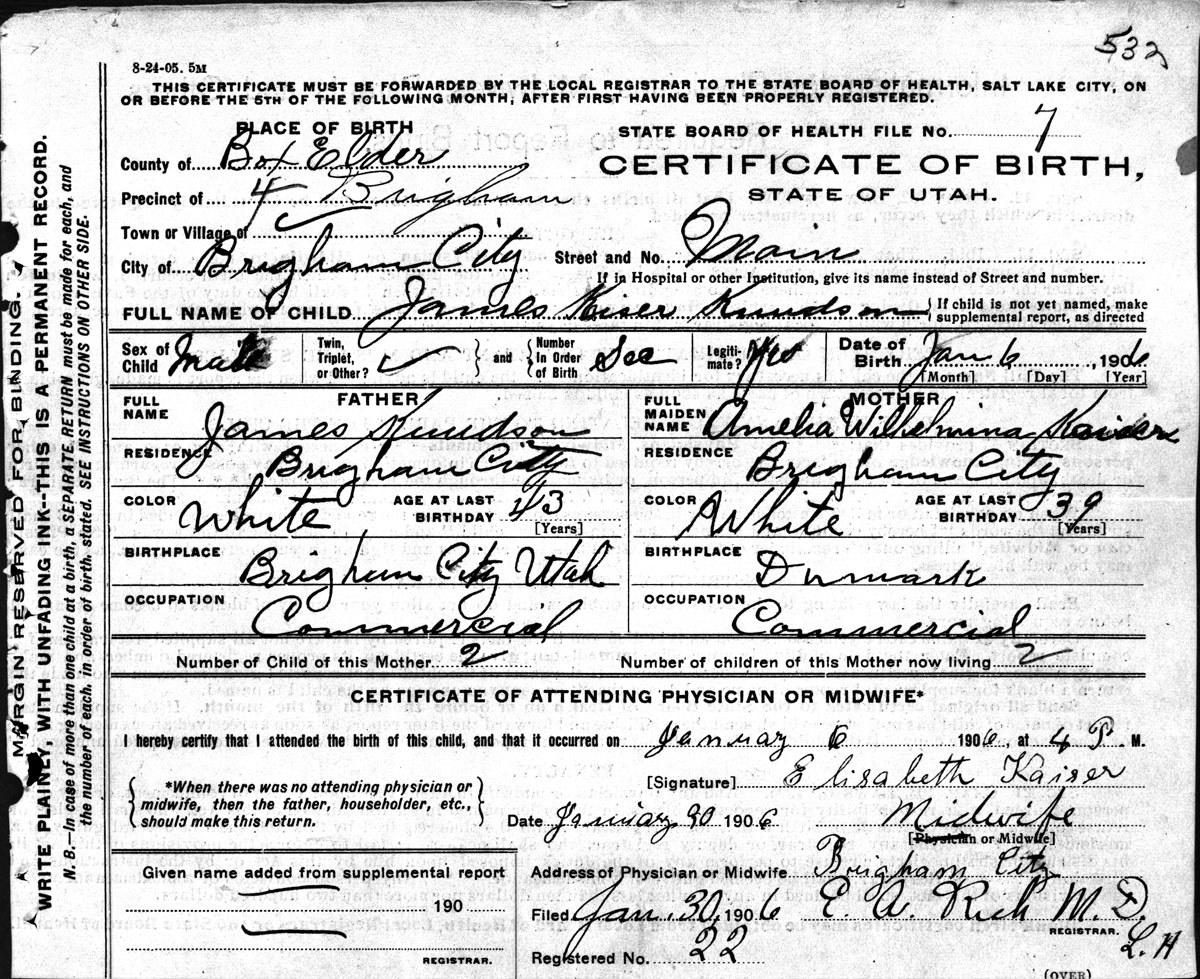 532
8-24-05. 5M
THIS CERTIFICATE MUST BE FORWARDED BY THE LOCAL REGISTRAR TO THE STATE BOARD OF HEALTH, SALT LAKE CITY, ON
OR BEFORE THE 5TH OF THE FOLLOWING MONTH, AFTER FIRST HAVING BEEN PROPERLY REGISTERED.
PLACE OF BIRTH
STATE BOARD OF HEALTH FILE No. 7
County of Box Elder
CERTIFICATE OF BIRTH,
Precinct of 4 Brigham
STATE OF UTAH.
Town or Village of
City of Brigham City Street and No. Main
If in Hospital or other Institution, give its name instead of Street and number.
FULL NAME OF CHILD James Kiser Knudson { If child is not yet named, make supplemental report, as directed
Sex of Child Male Twin, Triplet, or Other? } and { Number In Order of Birth Sec Legitimate? Yes Date of Birth Jan 6 1906
[Month] [Day] [Year]
FATHER
FULL NAME James Knudson
RESIDENCE Brigham City
COLOR White AGE AT LAST BIRTHDAY 43 [Years]
BIRTHPLACE Brigham City Utah
OCCUPATION Commercial
MOTHER
FULL MAIDEN NAME Amelia Wilhelmina Kaiser
RESIDENCE Brigham City
COLOR White AGE AT LAST BIRTHDAY 39 [Years]
BIRTHPLACE Dnmark
OCCUPATION Commercial
Number of Child of this Mother 2 Number of children of this Mother now living 2
CERTIFICATE OF ATTENDING PHYSICIAN OR MIDWIFE*
I hereby certify that I attended the birth of this child, and that it occurred on January 6 1906, at 4 P. M.
*When there was no attending physician or
midwife, then the father, householder, etc.,
should make this return.
[Signature] Elisabeth Kaiser
Date January 30 1906 Midwife
[Physician or Midwife]
Given name added from supplemental report
190
REGISTRAR.
Address of Physician or Midwife Brigham City
Filed Jan. 30, 1906 E. A. Rich M. D.
REGISTRAR.
L. H
Registered No. 22
(OVER)
MARGIN RESERVED FOR BINDING.
WRITE PLAINLY, WITH UNFADING INK--THIS IS A PERMANENT RECORD.
N. B.—In case of more than one child at a birth, a SEPARATE RETURN must be made for each, and
the number of each, in order of birth, stated. SEE INSTRUCTIONS ON OTHER SIDE.